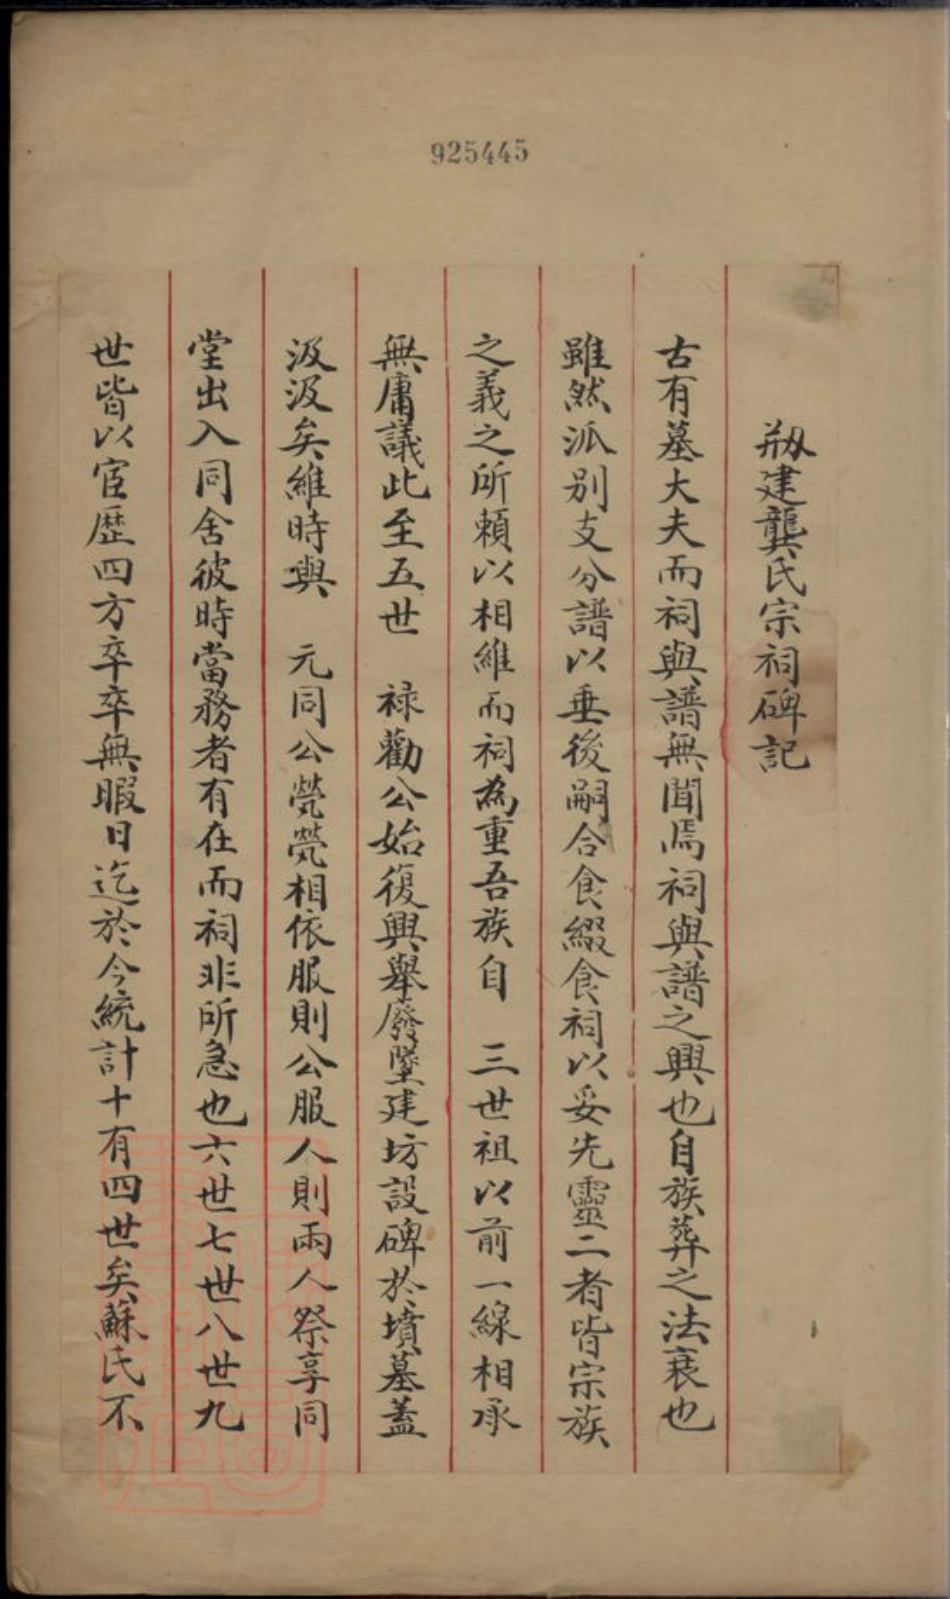 925445
剏建龔氏宗祠碑記
古有墓大夫而祠與譜無聞焉祠與譜之興也自族葬之法衰也
雖然派別支分譜以垂後嗣合食綴食祠以妥先靈二者皆宗族
之義之所賴以相維而祠為重吾族自　三世祖以前一線相承
無庸議此至五世　祿勸公始復興舉廢墜建坊設碑於墳墓蓋
汲汲矣維時與　元同公煢煢相依服則公服人則兩人祭享同
堂出入同舍彼時當務者有在而祠非所急也六世七世八世九
世皆以宦歷四方卒卒無暇日迄於今統計十有四世矣蘇氏不